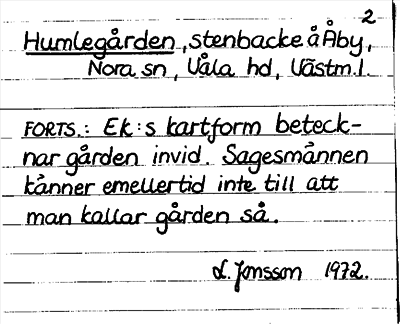 2
Humlegården, stenbacke å Åby,
Nora sn, Våla hd, Västm.l.
FORTS.: Ek:s kartform beteck-
nar gården invid. Sagesmännen
känner emellertid inte till att
man kallar gården så.
L. Jonsson 1972.